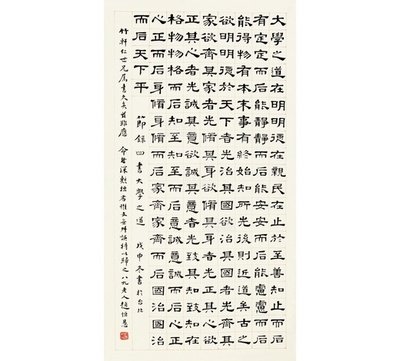 大學之道在明明德在親民在止於至善知止而后
有定定而后能靜靜而后能安安而后能慮慮而后
能得物有本末事有終始知所先後則近道矣古之
欲明明德於天下者先治其國欲治其國者先齊其
家欲齊其家者先脩其身欲脩其身者先正其心欲
正其心者先誠其意欲誠其意者先致其知致知在
格物物格而后知至知至而后意誠意誠而后心正
心正而后身脩身脩而后家齊家齊而后國治國治
而后天下平
節錄四書大學之道 戊申冬書於台北
竹軒仁世兄屬書 趙恆惖